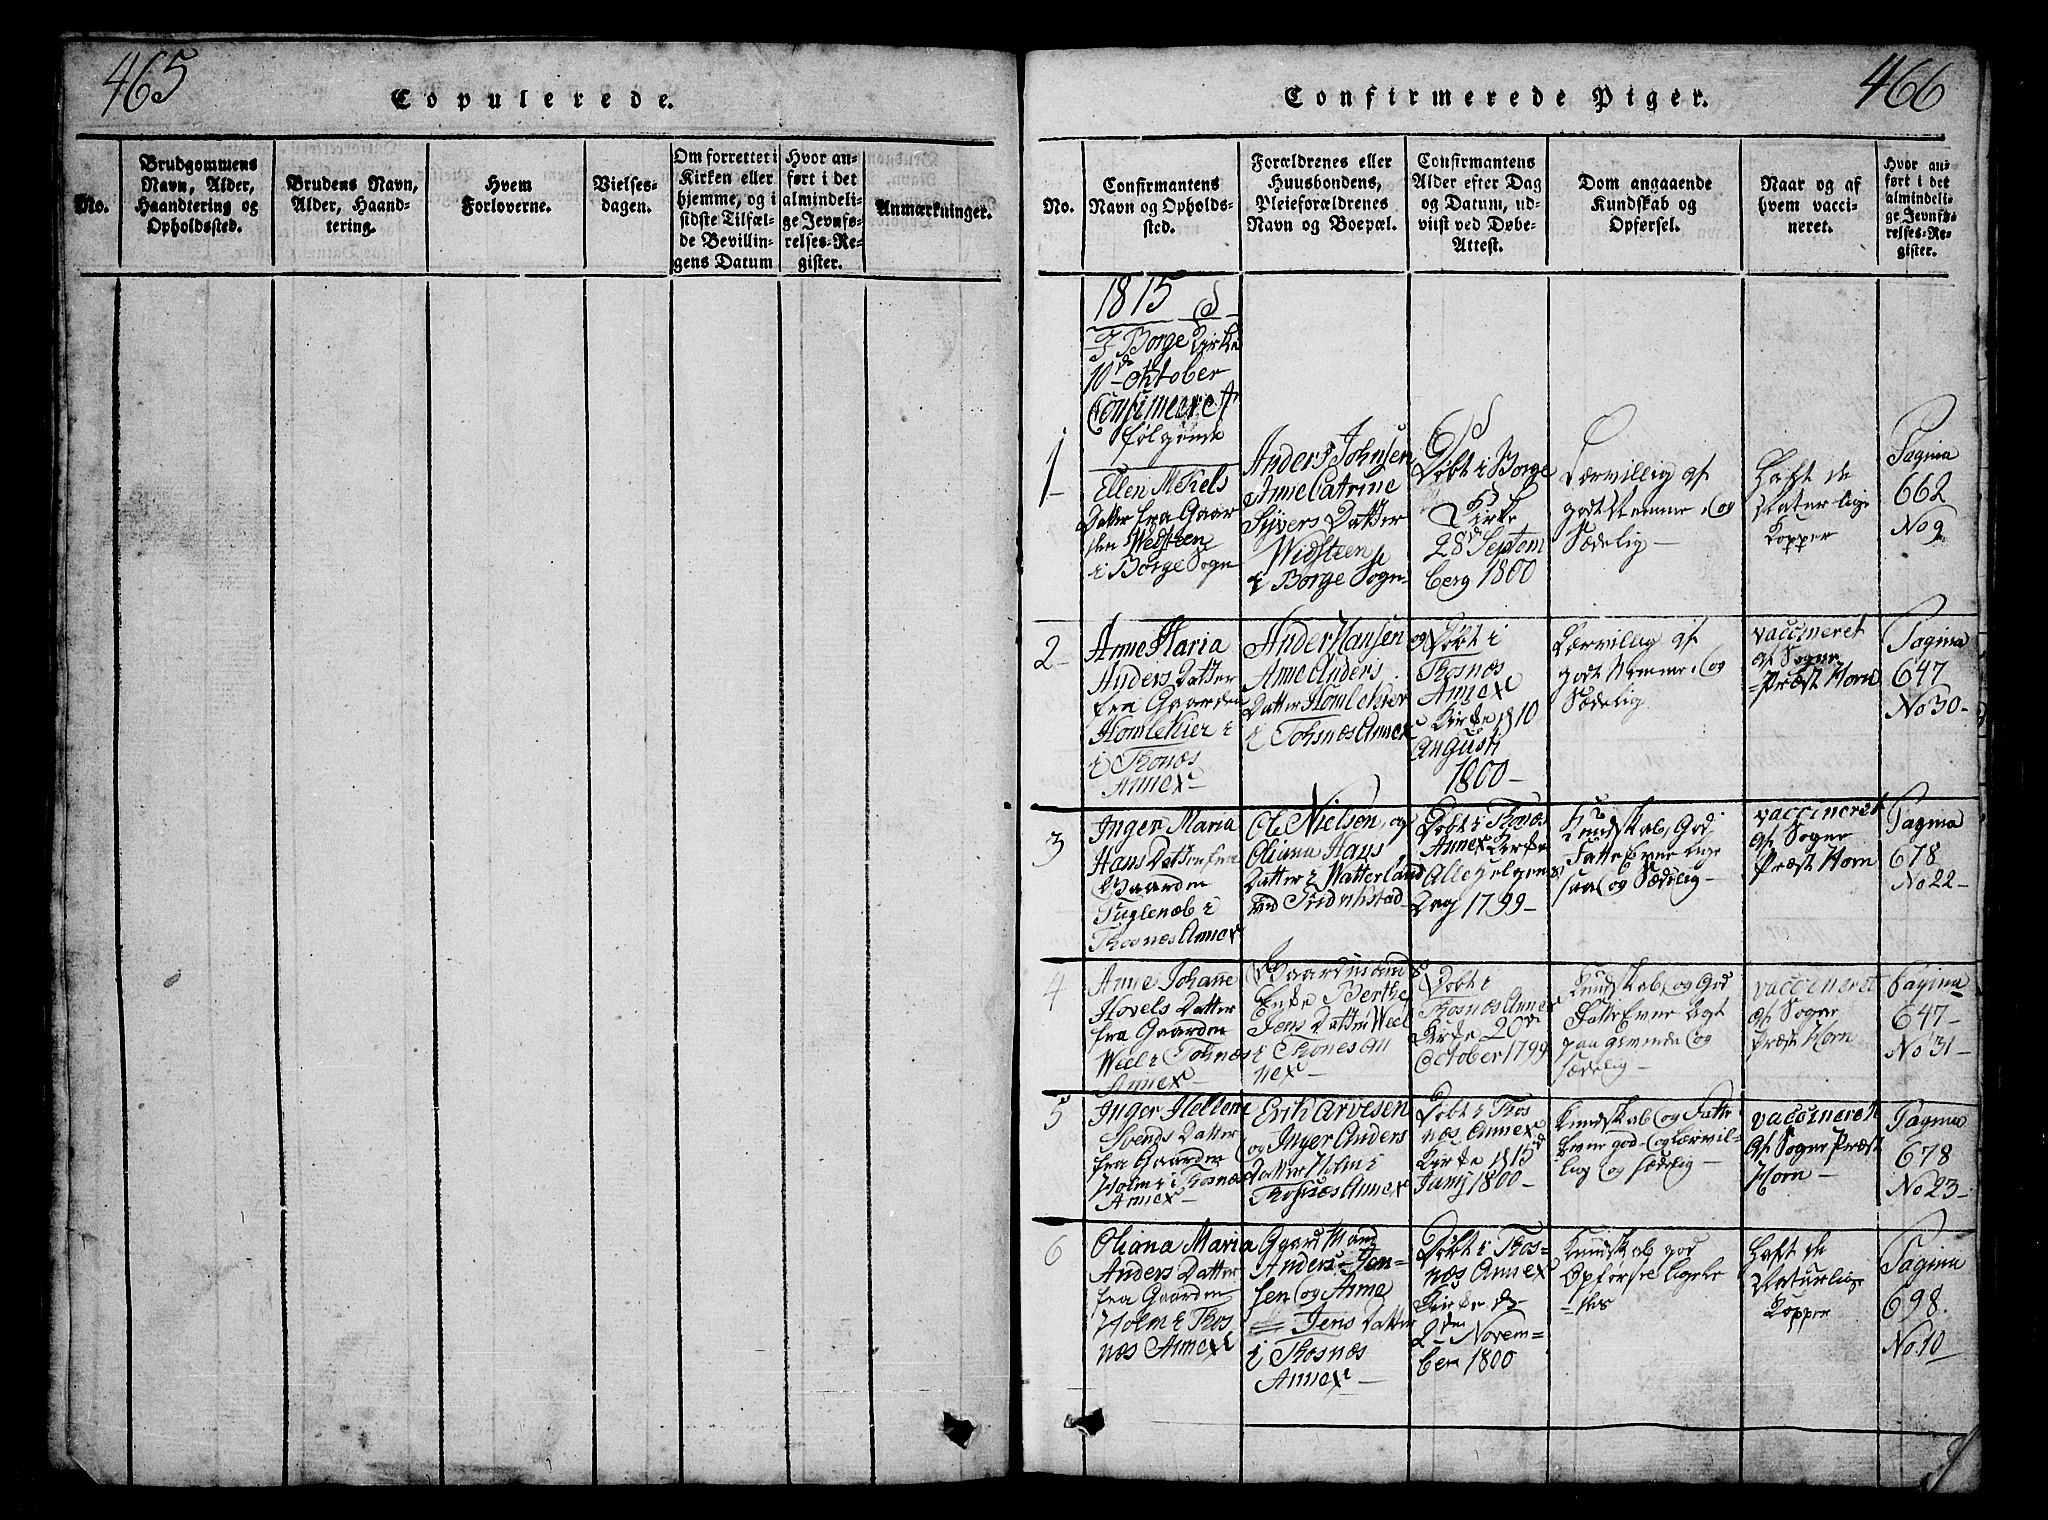 465
Copulerede.
No.
Brudgommens
Navn, Alder,
Haandtering og
Opholdssted.
Brudens Navn,
Alder, Haand-
tering.
Hvem
Forloverne.
Vielses-
dagen.
Om forrettet i
Kirken eller
hjemme, og i
sidste Tilfæl-
de Bevillin-
gens Datum
Hvor an-
ført i det
almindeli-
ge Jevnfø-
relses-Re-
gister.
Anmærkninger.
466
Confirmerede Piger.
No.
Confirmantens
Navn og Opholds-
sted.
Forældrenes eller
Huusbondens,
Pleieforældrenes
Navn og Boepæl.
Confirmantens
Alder efter Dag
og Datum, ud-
viist ved Døbe-
Attest.
Dom angaaende
Kundskab og
Opførsel.
Naar og af
hvem vacci-
neret.
Hvor an-
ført i det
almindeli-
ge Jevnfø-
relses-Re-
gister.
1815
I Borge Kirke
10de Oktober
Confirmeret
følgende
1
Ellen Mekels
Datter fra Gaar
den Widsteen
i Borge Sogn
Anders Johnsen
Anne Catrine
Syvers Datter
Widsteen
i Borge Sogn
Døbt i Borge
Kirke
28de Septem
berg 1800
Lærvillig af
godt Nemme og
Sædelig
Haft de
Naturlige
Kopper
Pagina
662
No 9
2
Anne Maria
Anders Datter
fra Gaarden
Homlekier i
i Thonæs
Annex
Ander Hansen og
Anne Anders
Datter Homlekier
i Tohsnæs Annex
Døbt i
Thosnæs
Annex
Kirke d 10
Augusti
1800
Lærvillig af
godt Nemme og
Sædelig
vaccineret
af Sogne
Præst Horn
Pagina
647
No 30
3
Inger Maria
Hans Datter fra
Gaarden
Fuglenæb i
Thosnæs Annex
Ole Nielsen, og
Oliana Hans
Datter i Watterland
ved Fridrikstad
Døbt i Thonæs
Annex Kirke
Alle helgens
Dag 1799
Kundskab, God
Fatte Evne lige
saa og Sædelig
vaccineret
af Sogne
Præst Horn
Pagina
678
No 22
4
Anne Johanne
Hovels Datter
fra Gaarden
Weel i Tohnæs
Annex
Gaardmands
Enke Berthe
Jens Datter Weel
i Thones An
nex
Døbt i
Thosnæs Annex
Kirke 20de
October 1799
Kundskab, og God
Fatte Evne
Sædelig
vaccineret
af Sogne
Præst Horn
Pagina
647
No 31
5
Inger Hellene
Svends Datter
fra Gaarden
Holm i Thosnæs
Annex
Erik Arvesen
og Inger Anders
Datter Holm i
Thosnæs Annex
Døbt i Thos
næs Annex
Kirke d 15de
Junij 1800
Kundskab og Fatte
Evne god og Lærvil-
lig og Sædelig
vaccineret
af Sogne Præst
Horn
Pagina
678
No 23
6
Oliana Maria
Anders Datter
fra Gaarden
Holm i Thos
næs Annex
Gaard Mand
Anders Jen=
sen og Anne
Jens Datter
i Thosnæs
Annex
Døbt i Thos=
næs Annex
Kirke d
2den Novem=
ber 1800
Kundskab god
Opførsel ligele
=des
Haft de
Naturlige
Kopper
Pagina
698
No 10